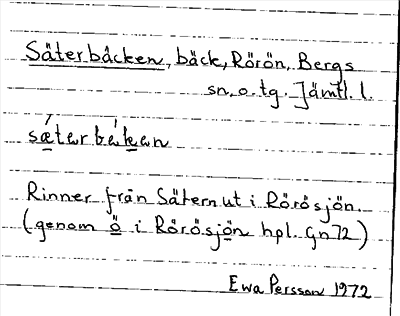 Säterbäcken, bäck, Rörön, Bergs
sn. o. tg. Jämtl. l.
sǽterbékan
Rinner från Sätern ut i Rörösjön.
(genom ö i Rörösjön hpl. Gn72)
Ewa Persson 1972